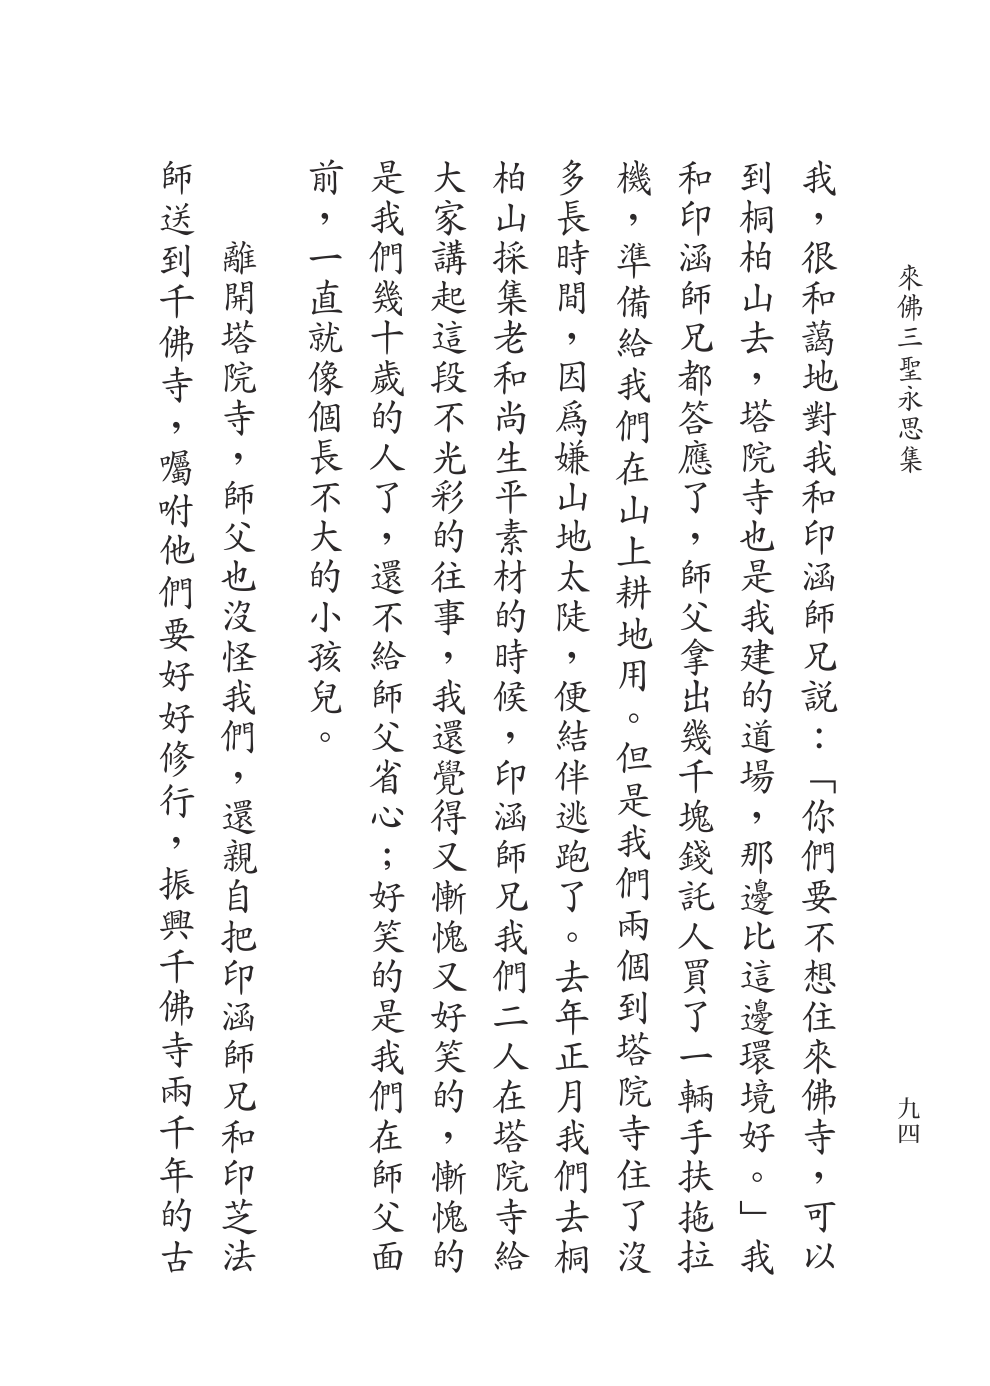 來佛三聖永思集
九四
我，很和藹地對我和印涵師兄說：「你們要不想住來佛寺，可以
到桐柏山去，塔院寺也是我建的道場，那邊比這邊環境好。」我
和印涵師兄都答應了，師父拿出幾千塊錢託人買了一輛手扶拖拉
機，準備給我們在山上耕地用。但是我們兩個到塔院寺住了沒
多長時間，因爲嫌山地太陡，便結伴逃跑了。去年正月我們去桐
柏山採集老和尚生平素材的時候，印涵師兄我們二人在塔院寺給
大家講起這段不光彩的往事，我還覺得又慚愧又好笑的，慚愧的
是我們幾十歲的人了，還不給師父省心；好笑的是我們在師父面
前，一直就像個長不大的小孩兒。
離開塔院寺，師父也沒怪我們，還親自把印涵師兄和印芝法
師送到千佛寺，囑咐他們要好好修行，振興千佛寺兩千年的古